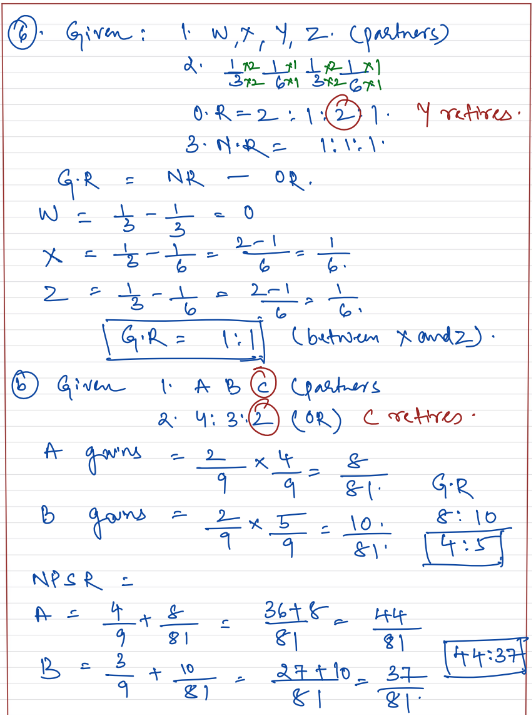 ⑥. Given : 1. W, X, Y, Z. (partners)
2. 1/3 ×2/×2 1/6 ×1/×1 1/3 ×2/×2 1/6 ×1/×1
O.R = 2 : 1 : 2 : 1. Y retires.
3. N.R = 1:1:1.
G.R = NR — OR.
W = 1/3 - 1/3 = 0
X = 1/3 - 1/6 = 2-1/6 = 1/6.
Z = 1/3 - 1/6 = 2-1/6 = 1/6.
G.R = 1:1 (between X and Z).
ⓑ Given 1. A B C (partners
2. 4:3:2 (OR) C retires.
A gains = 2/9 × 4/9 = 8/81.
G.R
B gains = 2/9 × 5/9 = 10./81.
8:10
4:5
NPSR =
A = 4/9 + 8/81 = 36+8/81 = 44/81
B = 3/9 + 10/81 = 27+10/81 = 37/81.
44:37